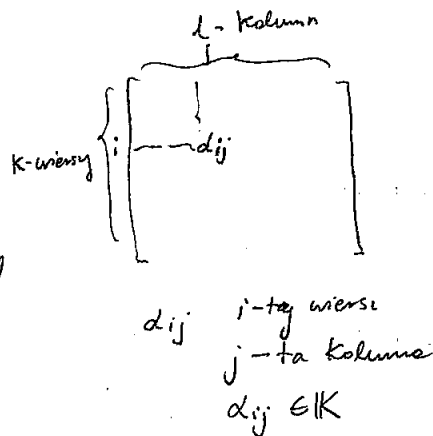 l - kolumn
k-wierszy
i
αij
αij i-ty wiersz
j-ta kolumna
αij ∈ 𝕂